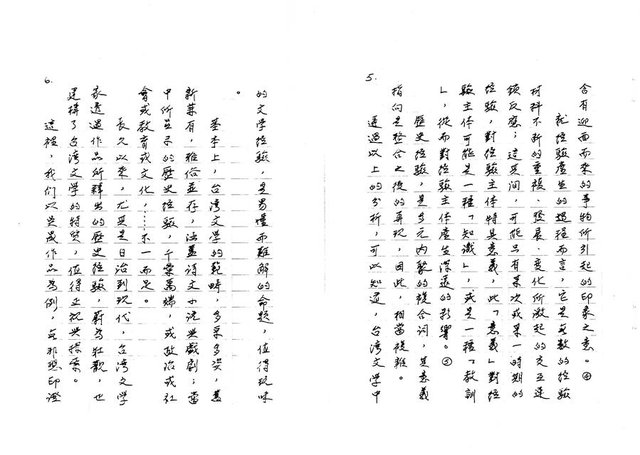 5.
含有迎面而來的事物所引起的印象之意。④
就經驗產生的過程而言,它是無數的經驗
材料不斷的重複、發展、變化所激起的交互連
鎖反應;這其間,可能只有某次或某一時期的
經驗,對經驗主体特具意義,此「意義」對經
驗主体可能是一種「知識」,或是一種「教訓
」,從而對經驗主体產生深遠的影響。⑤
歷史經驗,是多元内聚的複合詞,其意義
指向是整合之後的再現,因此,相當複雜。
透過以上的分析,可以知道,台湾文學中
6.
的文學經驗,是易懂而難解的命題,值得玩味
。
基本上,台湾文學的範疇,多采多姿,甚
新舊有,雅俗並存,涵蓋詩文小說與戲劇;當
中所呈示的歷史經驗,千葉萬端,或政治或社
會或教育或文化,……不一而足。
長久以來,尤其是日治到現代,台湾文學
家透過作品所釋出的歷史經驗,蔚為壯觀,也
足構了台湾文學的特質,值得正視與探索。
這裡,我們以吳晟作品為例,
印證